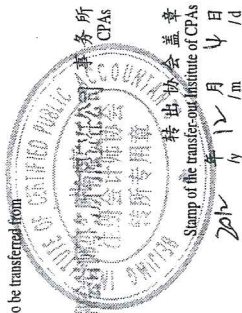 o be transferred from
事务所
CPAs
TUTE OF CERTIFIED PUBLIC ACCOUNTAN
BEIJING
注册会计师协会
转所专用章
转出协会盖章
Stamp of the transfer-out Institute of CPAs
2012 年 12 月 4 日
/y /m /d